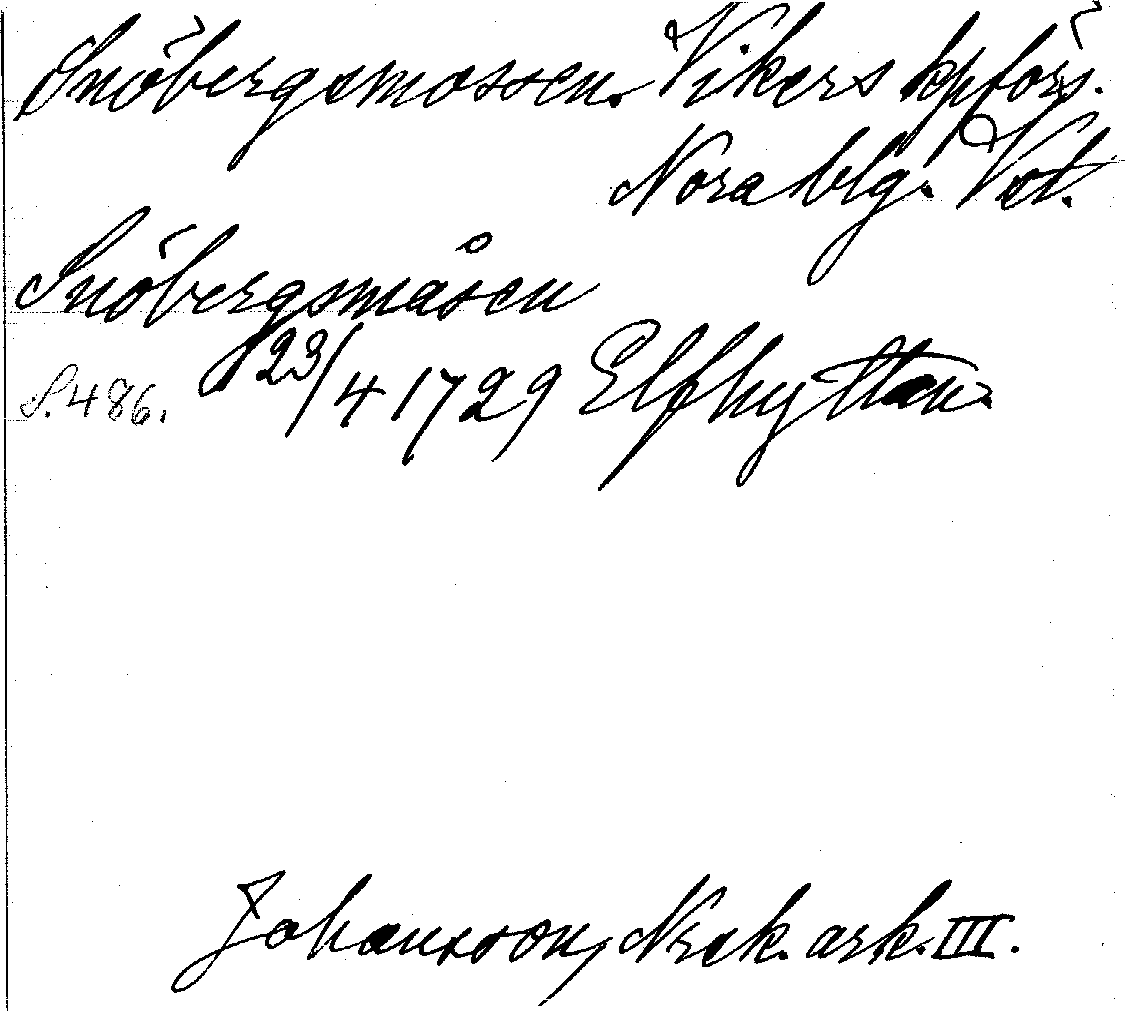 Snöbergsmossen. Vikers kpförs.
Nora blg. Vstm.
Snöbergsmåsen
S. 486. 23/4 1729 Elfhyttan.
Johansson, Nrck. ark. III.